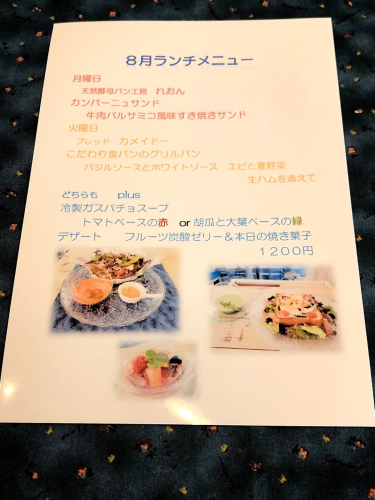 ８月ランチメニュー
月曜日
天然酵母パン工房　れおん
カンパーニュサンド
牛肉バルサミコ風味すき焼きサンド
火曜日
ブレッド　カメイドー
こだわり食パンのグリルパン
バジルソースとホワイトソース　エビと夏野菜
生ハムを添えて
どちらも　plus
冷製ガスパチョスープ
トマトベースの赤　or 胡瓜と大葉ベースの緑
デザート　フルーツ炭酸ゼリー＆本日の焼き菓子
１２００円